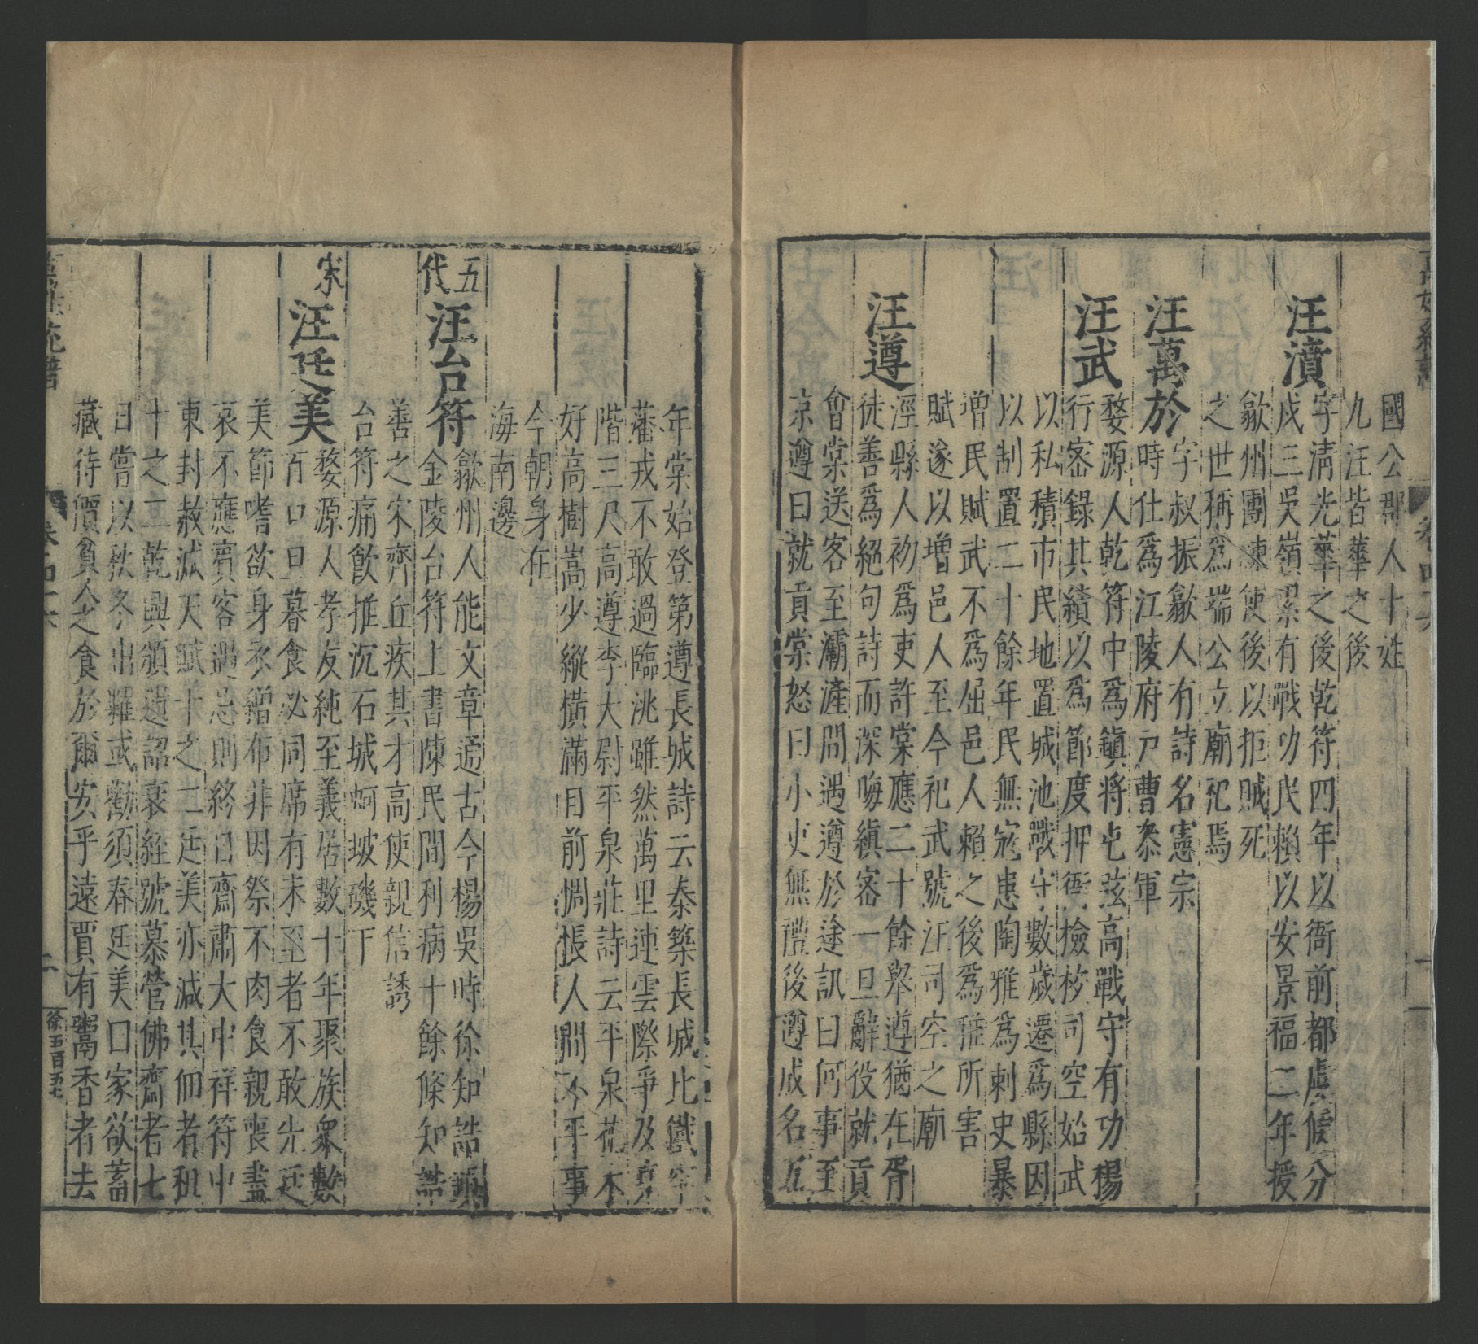 國公郡人十姓
九汪皆華之後
汪濆
字清光華之後乾符四年以衙前都虞候分
戍三吳嶺累有戰功民賴以安景福二年授
歙州團練使後以拒賊死
之世稱為端公立廟祀焉
汪萬於
字叔振歙人有詩名憲宗
時仕為江陵府戸曹叅軍
汪武
婺源人乾符中為鎮將屯弦高戰守有功楊
行密録其績以為節度押衙檢校司空始武
以私積市民地置城池戰守數歲遷為縣因
以制置二十餘年民無寇患陶雅為刺史暴
增民賦武不為屈邑人賴之後為雅所害
賦遂以增邑人至今祀武號汪司空之廟
汪遵
涇縣人初為吏許棠應二十餘舉遵猶在胥
徒善為絕句詩而深晦縝密一旦辭役就貢
會棠送客至灞滻間遇遵於途訊曰何事至
京遵曰就貢棠怒曰小吏無禮後遵成名五
年棠始登第遵長城詩云秦築長城比鐵牢
蕃戎不敢過臨洮雖然萬里連雲際爭及堯
階三尺高遵李太尉平泉莊詩云平泉花木
好高樹嵩少縱横滿目前惆悵人間不平事
今朝身在
海南邊
五代
汪台符
歙州人能文章適古今楊吳時徐知誥鎮
金陵台符上書陳民間利病十餘條知誥
善之宋齊丘疾其才高使親信誘
台符痛飲推沉石城蚵坡磯下
宋
汪廷美
婺源人孝友純至義居數十年聚族衆數
百口旦暮食必同席有未至者不敢先廷
美節嗜欲身衣繒布非因祭不肉食親喪盡
哀不應賓客遇忌則終日齋肅大中祥符中
東封赦減天賦十之二廷美亦減其佃者租
十之二乾興頒遺詔衰絰號慕營佛齋者七
日嘗以秋冬出糶或勸須春廷美曰家欲蓄
藏待價貧人之食於爾安乎遠賈有鬻香者去
徐五百五七